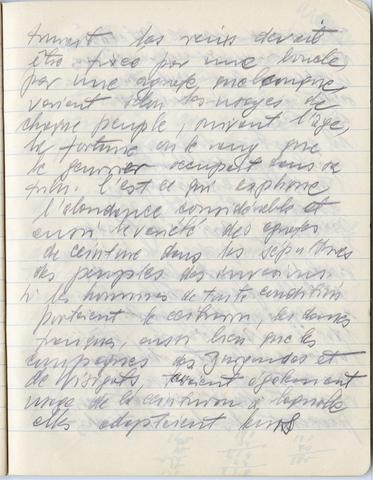 les reins devait
être fixée par une boucle
par une agrafe quelconque
variant selon des usages de
chaque peuple, suivant l'âge,
la fortune ou le rang que
le guerrier occupait dans sa
tribu. C'est ce qui explique
l'abondance considérable et
aussi la variété des agrafes
de ceinture dans les sépultures
des peuples des invasions
Si les hommes de toute condition
portaient le ceinturon, les dames
franques, aussi bien que les
compagnes des Burgondes et
de Visigots, avaient également
usage de la ceinture à laquelle
elles adaptaient leurs